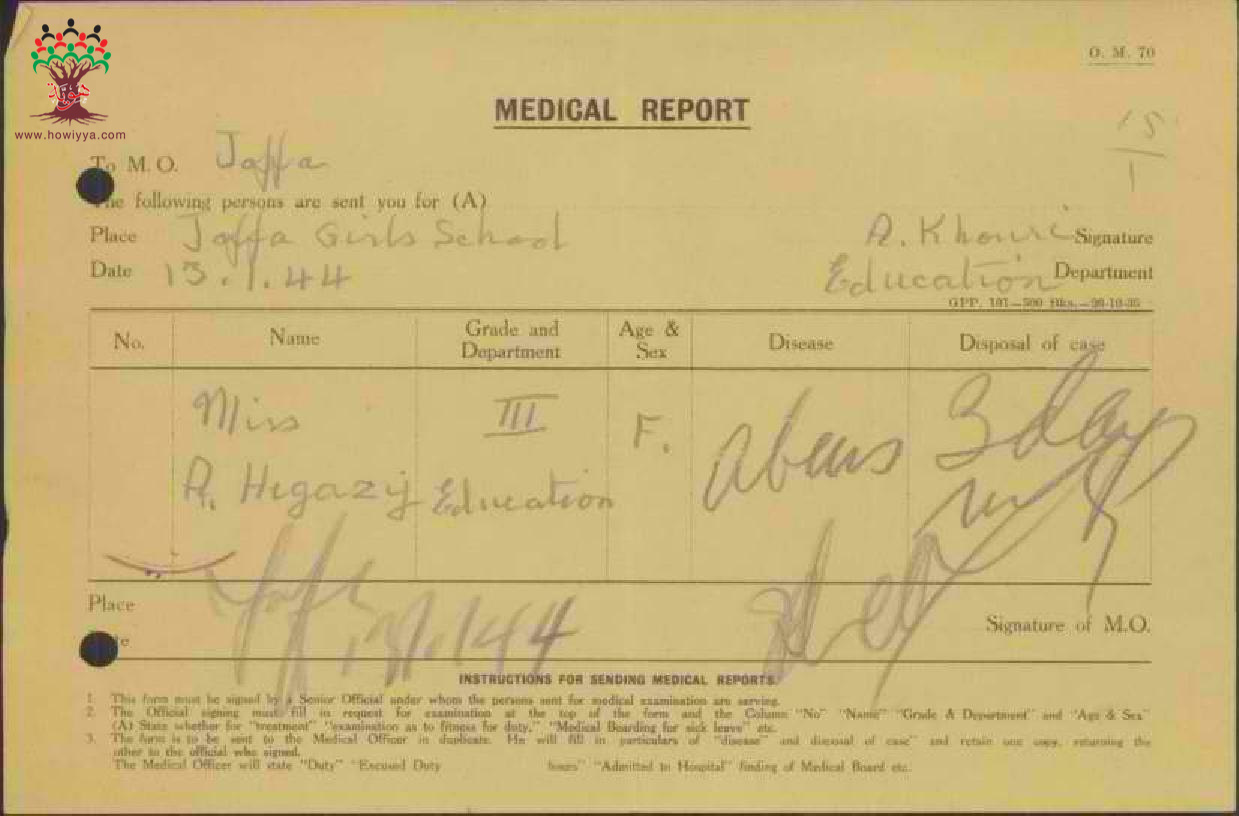 www.howiyya.com
O. M. 70
MEDICAL REPORT
15
1
To M. O. Jaffa
The following persons are sent you for (A)
Place Jaffa Girls School
A. Khouri Signature
Date 13.1.44
Education Department
GPP. 101—500 Bks.—26-10-35
No. Name Grade and Department Age & Sex Disease Disposal of case
Miss III F. 3 days
A. Hegazy Education
Place Jaffa
Date 13.1.44
Signature of M.O.
INSTRUCTIONS FOR SENDING MEDICAL REPORTS.
1. This form must be signed by a Senior Official under whom the persons sent for medical examination are serving.
2. The Official signing must fill in request for examination at the top of the form and the Column "No" "Name" "Grade & Department" and "Age & Sex"
(A) State whether for "treatment" "examination as to fitness for duty," "Medical Boarding for sick leave" etc.
3. The form is to be sent to the Medical Officer in duplicate. He will fill in particulars of "disease" and disposal of case" and retain one copy, returning the
other to the official who signed.
The Medical Officer will state "Duty" "Excused Duty hours" "Admitted to Hospital" finding of Medical Board etc.